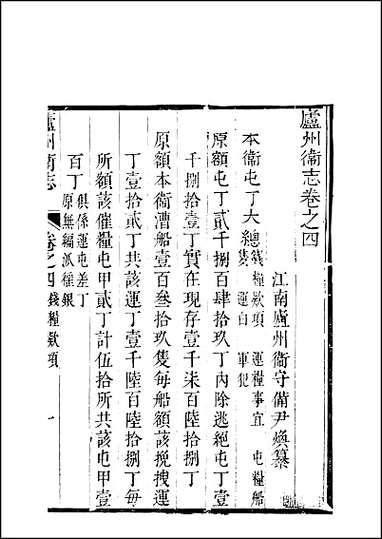 廬州衛志卷之四
江南廬州衛守備尹煥纂
本衛屯丁大總 錢糧欵項 運糧事宜 屯糧船隻 運白軍犯
原額屯丁貳千捌百肆拾玖丁內除逃絕屯丁壹
千捌拾壹丁實在現存壹千柒百陸拾捌丁
原額本衛漕船壹百叁拾玖隻每船額該挽拽運
丁壹拾貳丁共該運丁壹千陸百陸拾捌丁每
所額該催糧屯甲貳丁計伍拾所共該屯甲壹
百丁 俱係運屯差丁 原無編派徭銀
廬州衛志 卷之四 錢糧欵項 一